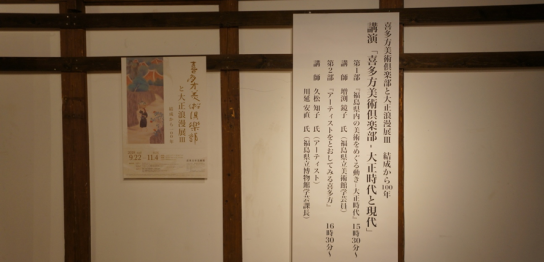 喜多方美術倶楽部と大正浪漫展Ⅲ 結成から100年
講演「喜多方美術倶楽部・大正時代と現代」
第1部 「福島県内の美術をめぐる動き-大正時代」 15時30分〜
講師 増渕鏡子 氏(福島県立美術館学芸員)
第2部 「アーティストをとおしてみる喜多方」 16時30分〜
講師 久松知子 氏(アーティスト)
川延安直 氏(福島県立博物館学芸課長)
喜多方美術倶楽部
と大正浪漫展Ⅲ
結成から100年
9.22
11.4